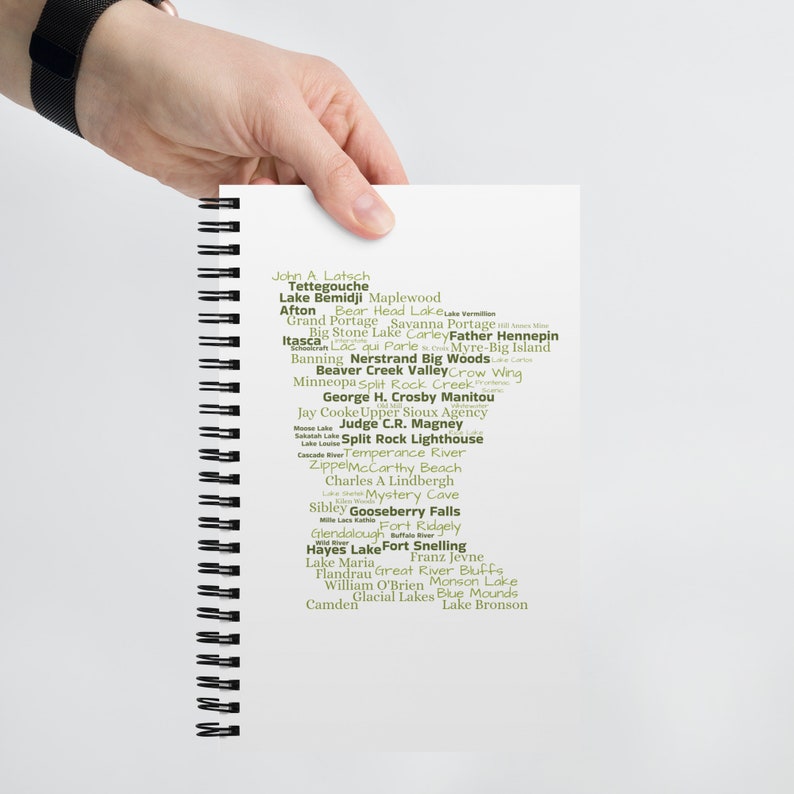 John A. Latsch
Tettegouche
Lake Bemidji Maplewood
Afton Bear Head Lake Lake Vermillion
Grand Portage Savanna Portage Hill Annex Mine
Big Stone Lake Carley Father Hennepin
Itasca Interstate
Schoolcraft Lac qui Parle St. Croix Myre-Big Island
Banning Nerstrand Big Woods Lake Carlos
Beaver Creek Valley Crow Wing
Minneopa Split Rock Creek Frontenac
Scenic
George H. Crosby Manitou
Old Mill Whitewater
Jay Cooke Upper Sioux Agency
Moose Lake Judge C.R. Magney
Sakatah Lake Split Rock Lighthouse Rice Lake
Lake Louise
Cascade River Temperance River
Zippel McCarthy Beach
Charles A Lindbergh
Lake Shetek Mystery Cave
Kilen Woods
Sibley Gooseberry Falls
Mille Lacs Kathio
Fort Ridgely
Glendalough Buffalo River
Wild River
Hayes Lake Fort Snelling
Franz Jevne
Lake Maria
Flandrau Great River Bluffs
William O'Brien Monson Lake
Glacial Lakes Blue Mounds
Camden Lake Bronson